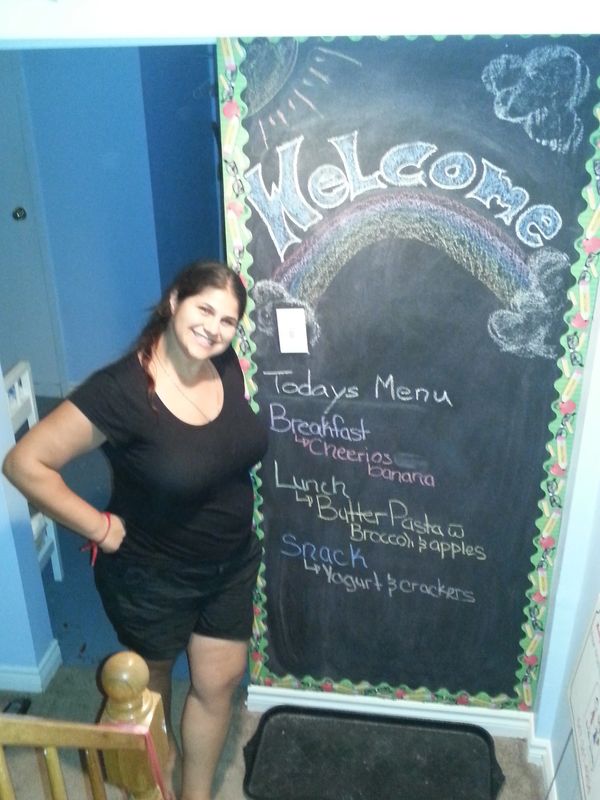 WeLcome
Todays Menu
Breakfast
↳ Cheerios
banana
Lunch
↳ Butter Pasta w̄
Broccoli & apples
Snack
↳ Yagurt & crackers